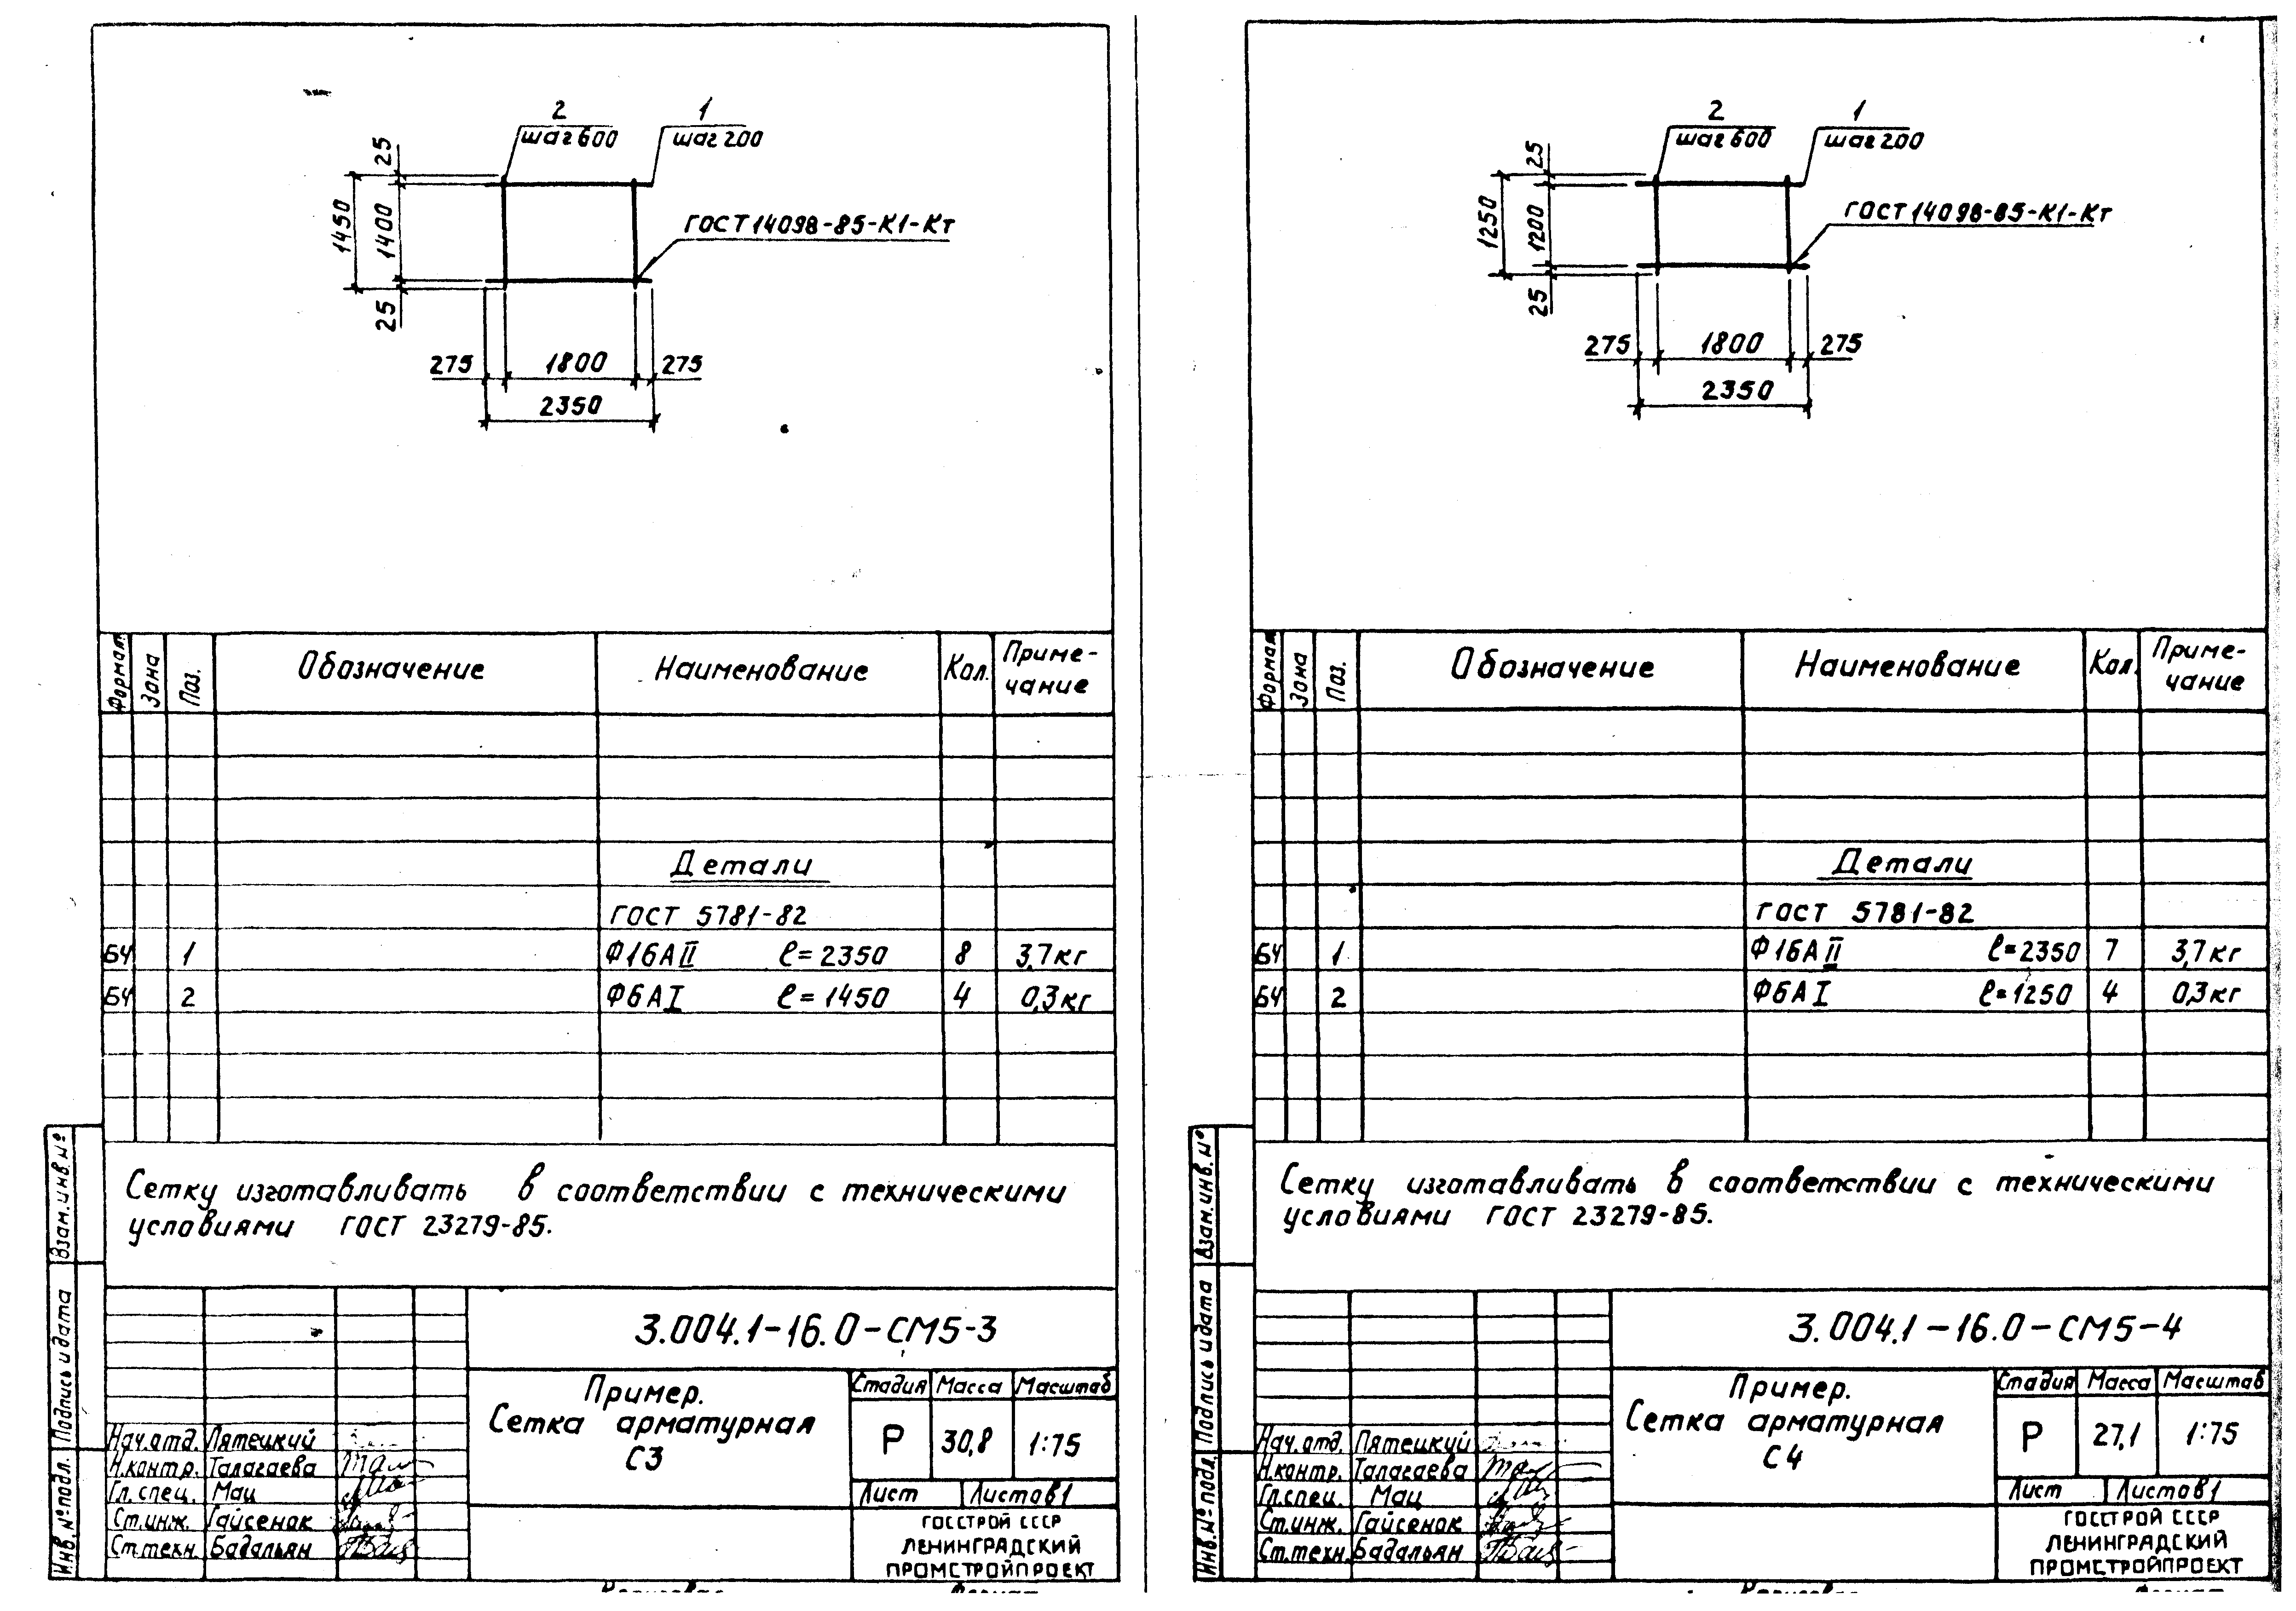 2
шаг 600
1
шаг 200
25
1400
1450
25
ГОСТ 14098-85-К1-Кт
275
1800
275
2350
Формат
Зона
Поз.
Обозначение
Наименование
Кол.
Приме-
чание
Детали
ГОСТ 5781-82
БЧ 1 Ф16АII ℓ=2350 8 3,7кг
БЧ 2 Ф6АI ℓ=1450 4 0,3кг
Сетку изготавливать в соответствии с техническими
условиями ГОСТ 23279-85.
Взам.инв.№
Подпись и дата
Инв.№ подл.
3.004.1-16.0-СМ5-3
Пример.
Сетка арматурная
С3
Стадия Масса Масштаб
Р 30,8 1:75
Лист Листов 1
Нач.отд. Пятецкий
Н.контр. Талагаева
Гл.спец. Мац
Ст.инж. Гайсенок
Ст.техн. Бадальян
ГОССТРОЙ СССР
ЛЕНИНГРАДСКИЙ
ПРОМСТРОЙПРОЕКТ
2
шаг 600
1
шаг 200
25
1200
1250
25
ГОСТ 14098-85-К1-Кт
275
1800
275
2350
Формат
Зона
Поз.
Обозначение
Наименование
Кол.
Приме-
чание
Детали
ГОСТ 5781-82
БЧ 1 Ф16АII ℓ=2350 7 3,7кг
БЧ 2 Ф6АI ℓ=1250 4 0,3кг
Сетку изготавливать в соответствии с техническими
условиями ГОСТ 23279-85.
Взам.инв.№
Подпись и дата
Инв.№ подл.
3.004.1-16.0-СМ5-4
Пример.
Сетка арматурная
С4
Стадия Масса Масштаб
Р 27,1 1:75
Лист Листов 1
Нач.отд. Пятецкий
Н.контр. Талагаева
Гл.спец. Мац
Ст.инж. Гайсенок
Ст.техн. Бадальян
ГОССТРОЙ СССР
ЛЕНИНГРАДСКИЙ
ПРОМСТРОЙПРОЕКТ